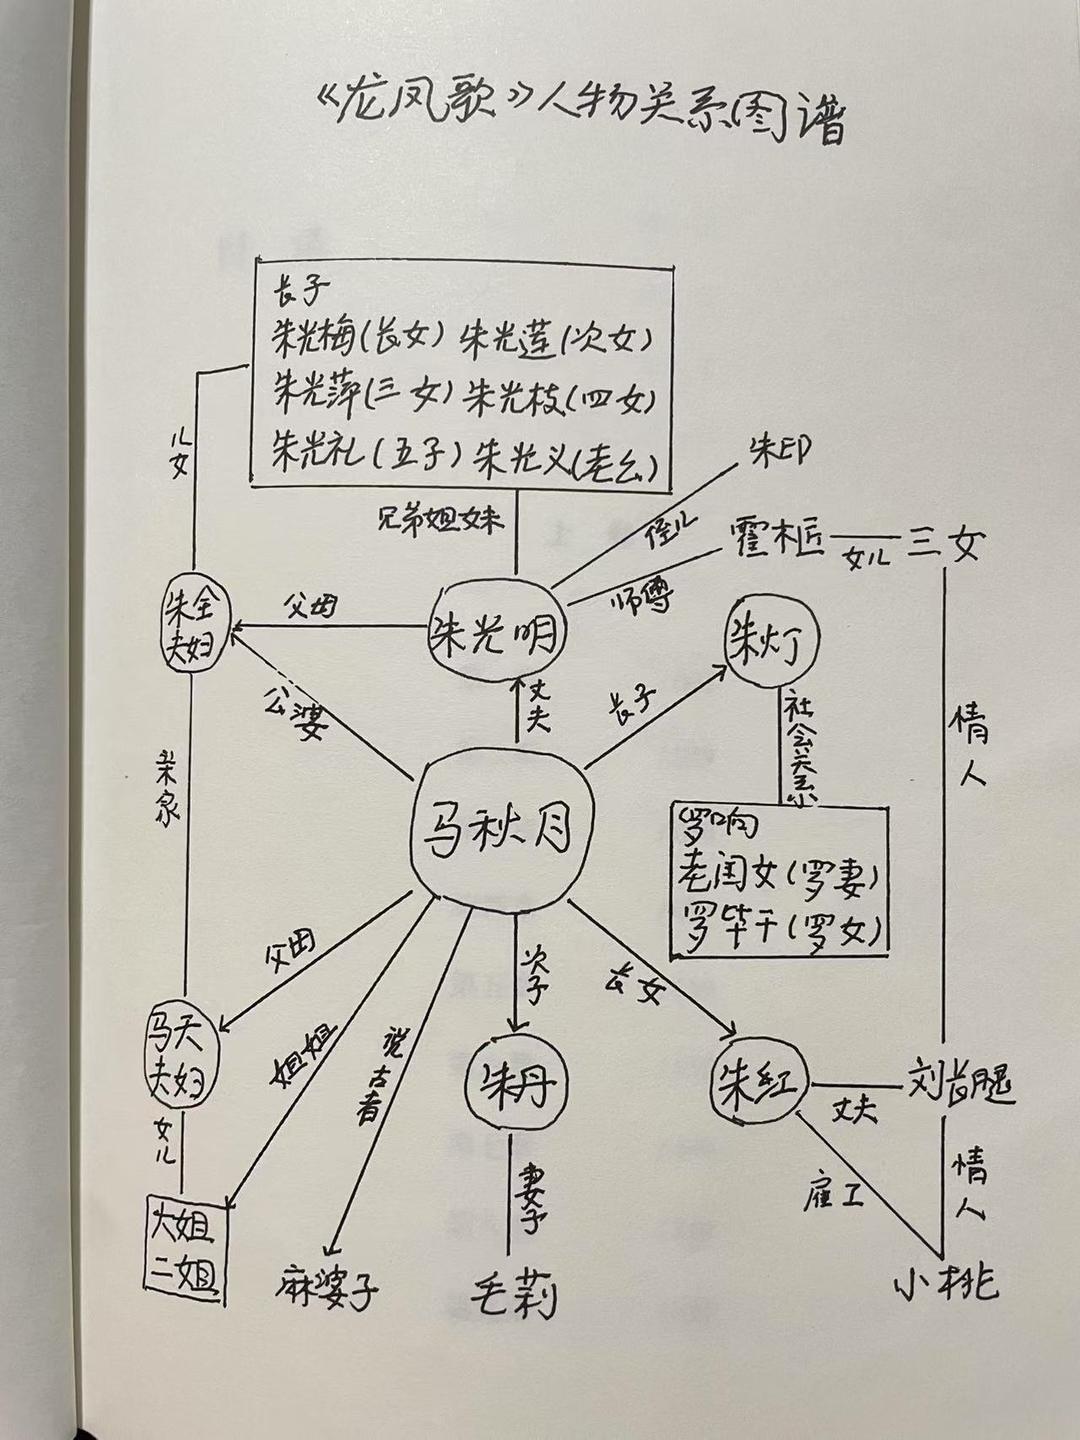 《龙凤歌》人物关系图谱
长子
朱光梅(长女) 朱光莲(次女)
朱光萍(三女) 朱光枝(四女)
朱光礼(五子) 朱光义(老幺)
儿女
兄弟姐妹
朱印
侄儿
霍框
女儿
三女
师傅
朱全
夫妇
父母
朱光明
朱灯
公婆
丈夫
长子
社会关系
情人
亲家
马秋月
罗响
老闺女(罗妻)
罗毕干(罗女)
父母
姐姐
说古者
次子
长女
马天
夫妇
朱丹
朱红
丈夫
刘长腿
女儿
妻子
雇工
情人
大姐
二姐
麻婆子
毛莉
小桃